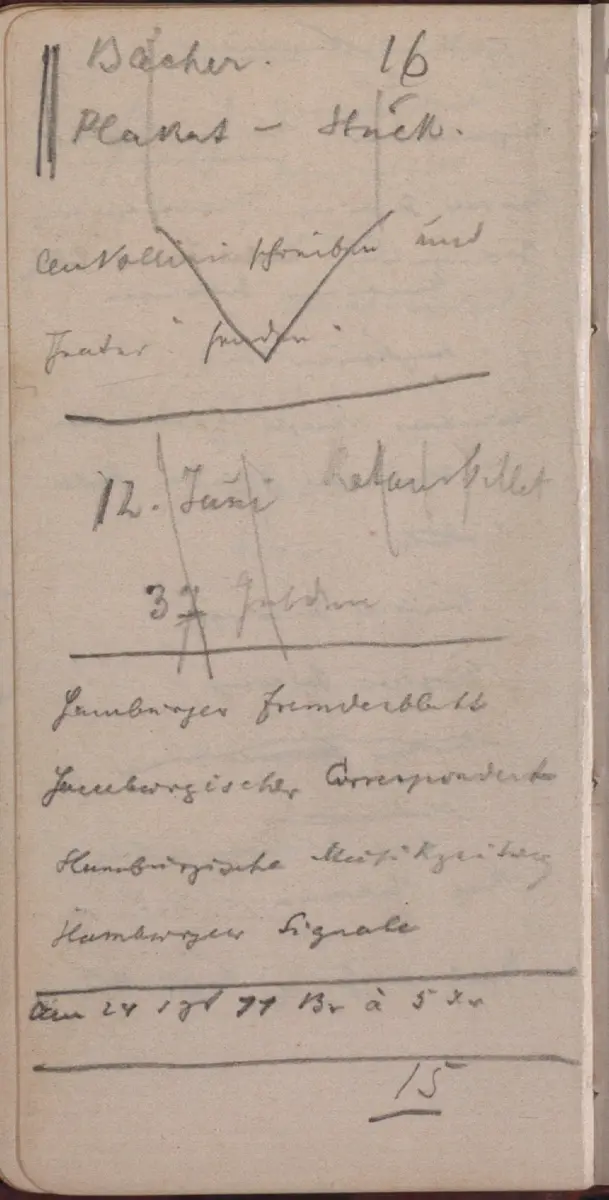 Bücher. 16
Plakat – Stück.
schreiben und
Theater senden
12. Juni Retourbillet
37 Gulden
Hamburger Fremdenblatt
Hamburgischer Correspondent
Hamburgische Musikzeitung
Hamburger Signale
Am 24 71 Br à 5 Xr
15